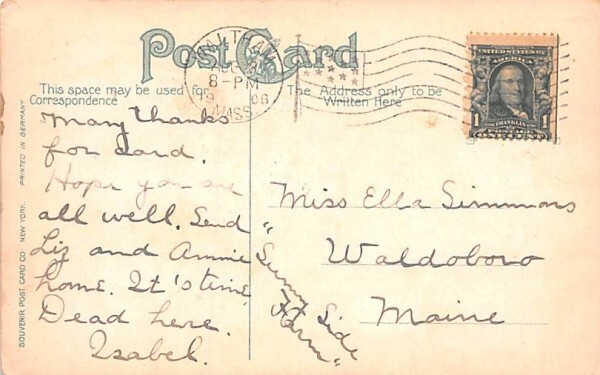 Post Card
WALTHAM
8-PM
MASS.
This space may be used for
Correspondence
The Address only to be
Written Here
UNITED STATES OF
AMERICA
1 FRANKLIN 1
POSTAGE
Many thanks
for card.
Hope you are
all well. Send
Liz and Annie
home. It's time
Dead here.
Isabel.
Miss Ella Simmons
Waldoboro
Maine
"Sunny Side
Farm"
SOUVENIR POST CARD CO. NEW YORK. PRINTED IN GERMANY